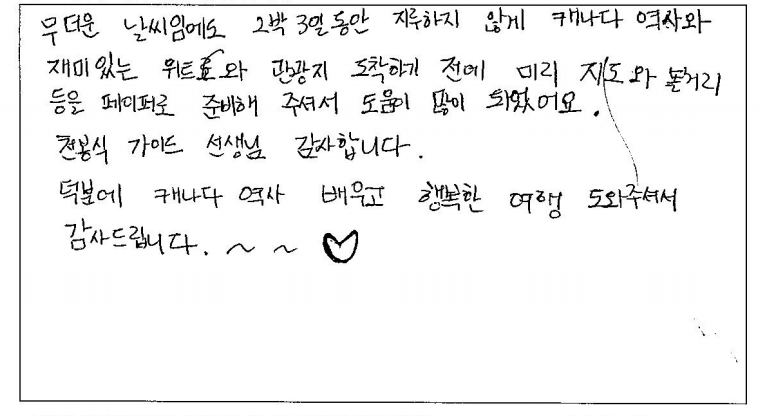 무더운 날씨임에도 2박 3일동안 지루하지 않게 캐나다 역사와
재미있는 위트료와 관광지 도착하기 전에 미리 지도와 볼거리
등을 페이퍼로 준비해 주셔서 도움이 많이 되었어요.
천봉식 가이드 선생님 감사합니다.
덕분에 캐나다 역사 배우고 행복한 여행 도와주셔서
감사드립니다. ~ ~ ♡